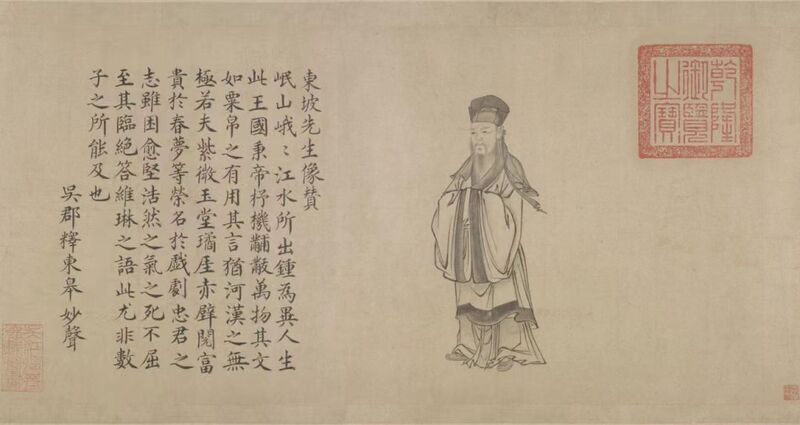 乾隆
御覽
之寶
東坡先生像贊
岷山峨〻江水所出鍾為異人生
此王國秉帝杼機黼黻萬物其文
如粟帛之有用其言猶河漢之無
極若夫紫微玉堂瓊厓赤壁閱富
貴於春夢等榮名於戲劇忠君之
志雖困愈堅浩然之氣之死不屈
至其臨絕答維琳之語此尤非數
子之所能及也
吳郡釋東皋妙聲